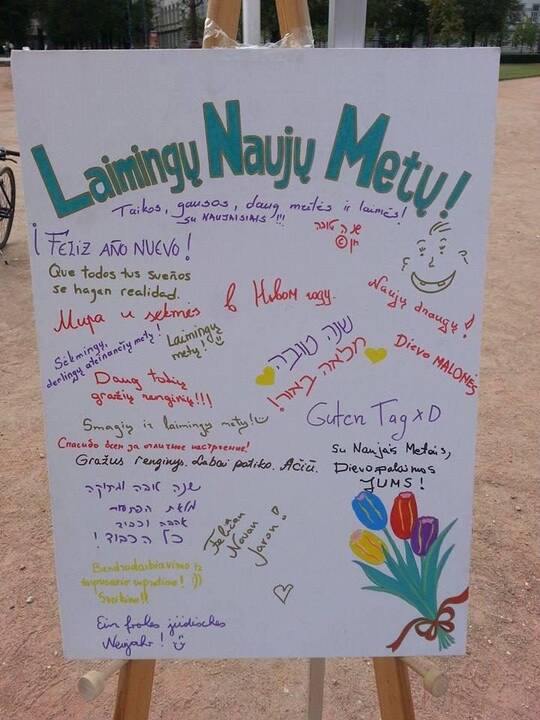 Laimingų Naujų Metų!
Taikos, gausos, daug meilės ir laimės!
su NAUJAISIAIS!!!
¡FELIZ AÑO NUEVO!
Que todos tus sueños
se hagan realidad.
שנה טובה
Naujų draugų!
Мира и sėkmės в Новом году.
Sėkmingų,
derlingų ateinančių metų!
Laimingų
metų!
שנה טובה
מלאה באור!
Dievo MALONĖS
Daug tokių
gražių renginių!!!
Smagių ir laimingų metų!
Guten Tag xD
Спасибо всем за отличное настроение!
Gražus renginys. Labai patiko. Ačiū.
Su Naujais Metais,
Dievo palaimos
JUMS!
שנה טובה ומתוקה
מלאת הפתעות
אהבה וכבוד
כל הכבוד!
Feliĉan
Novan
Jaron!
Bendradarbiavimo ir
tarpusavio supratimo! :))
Sveikino!!
Ein frohes jüdisches
Neujahr!